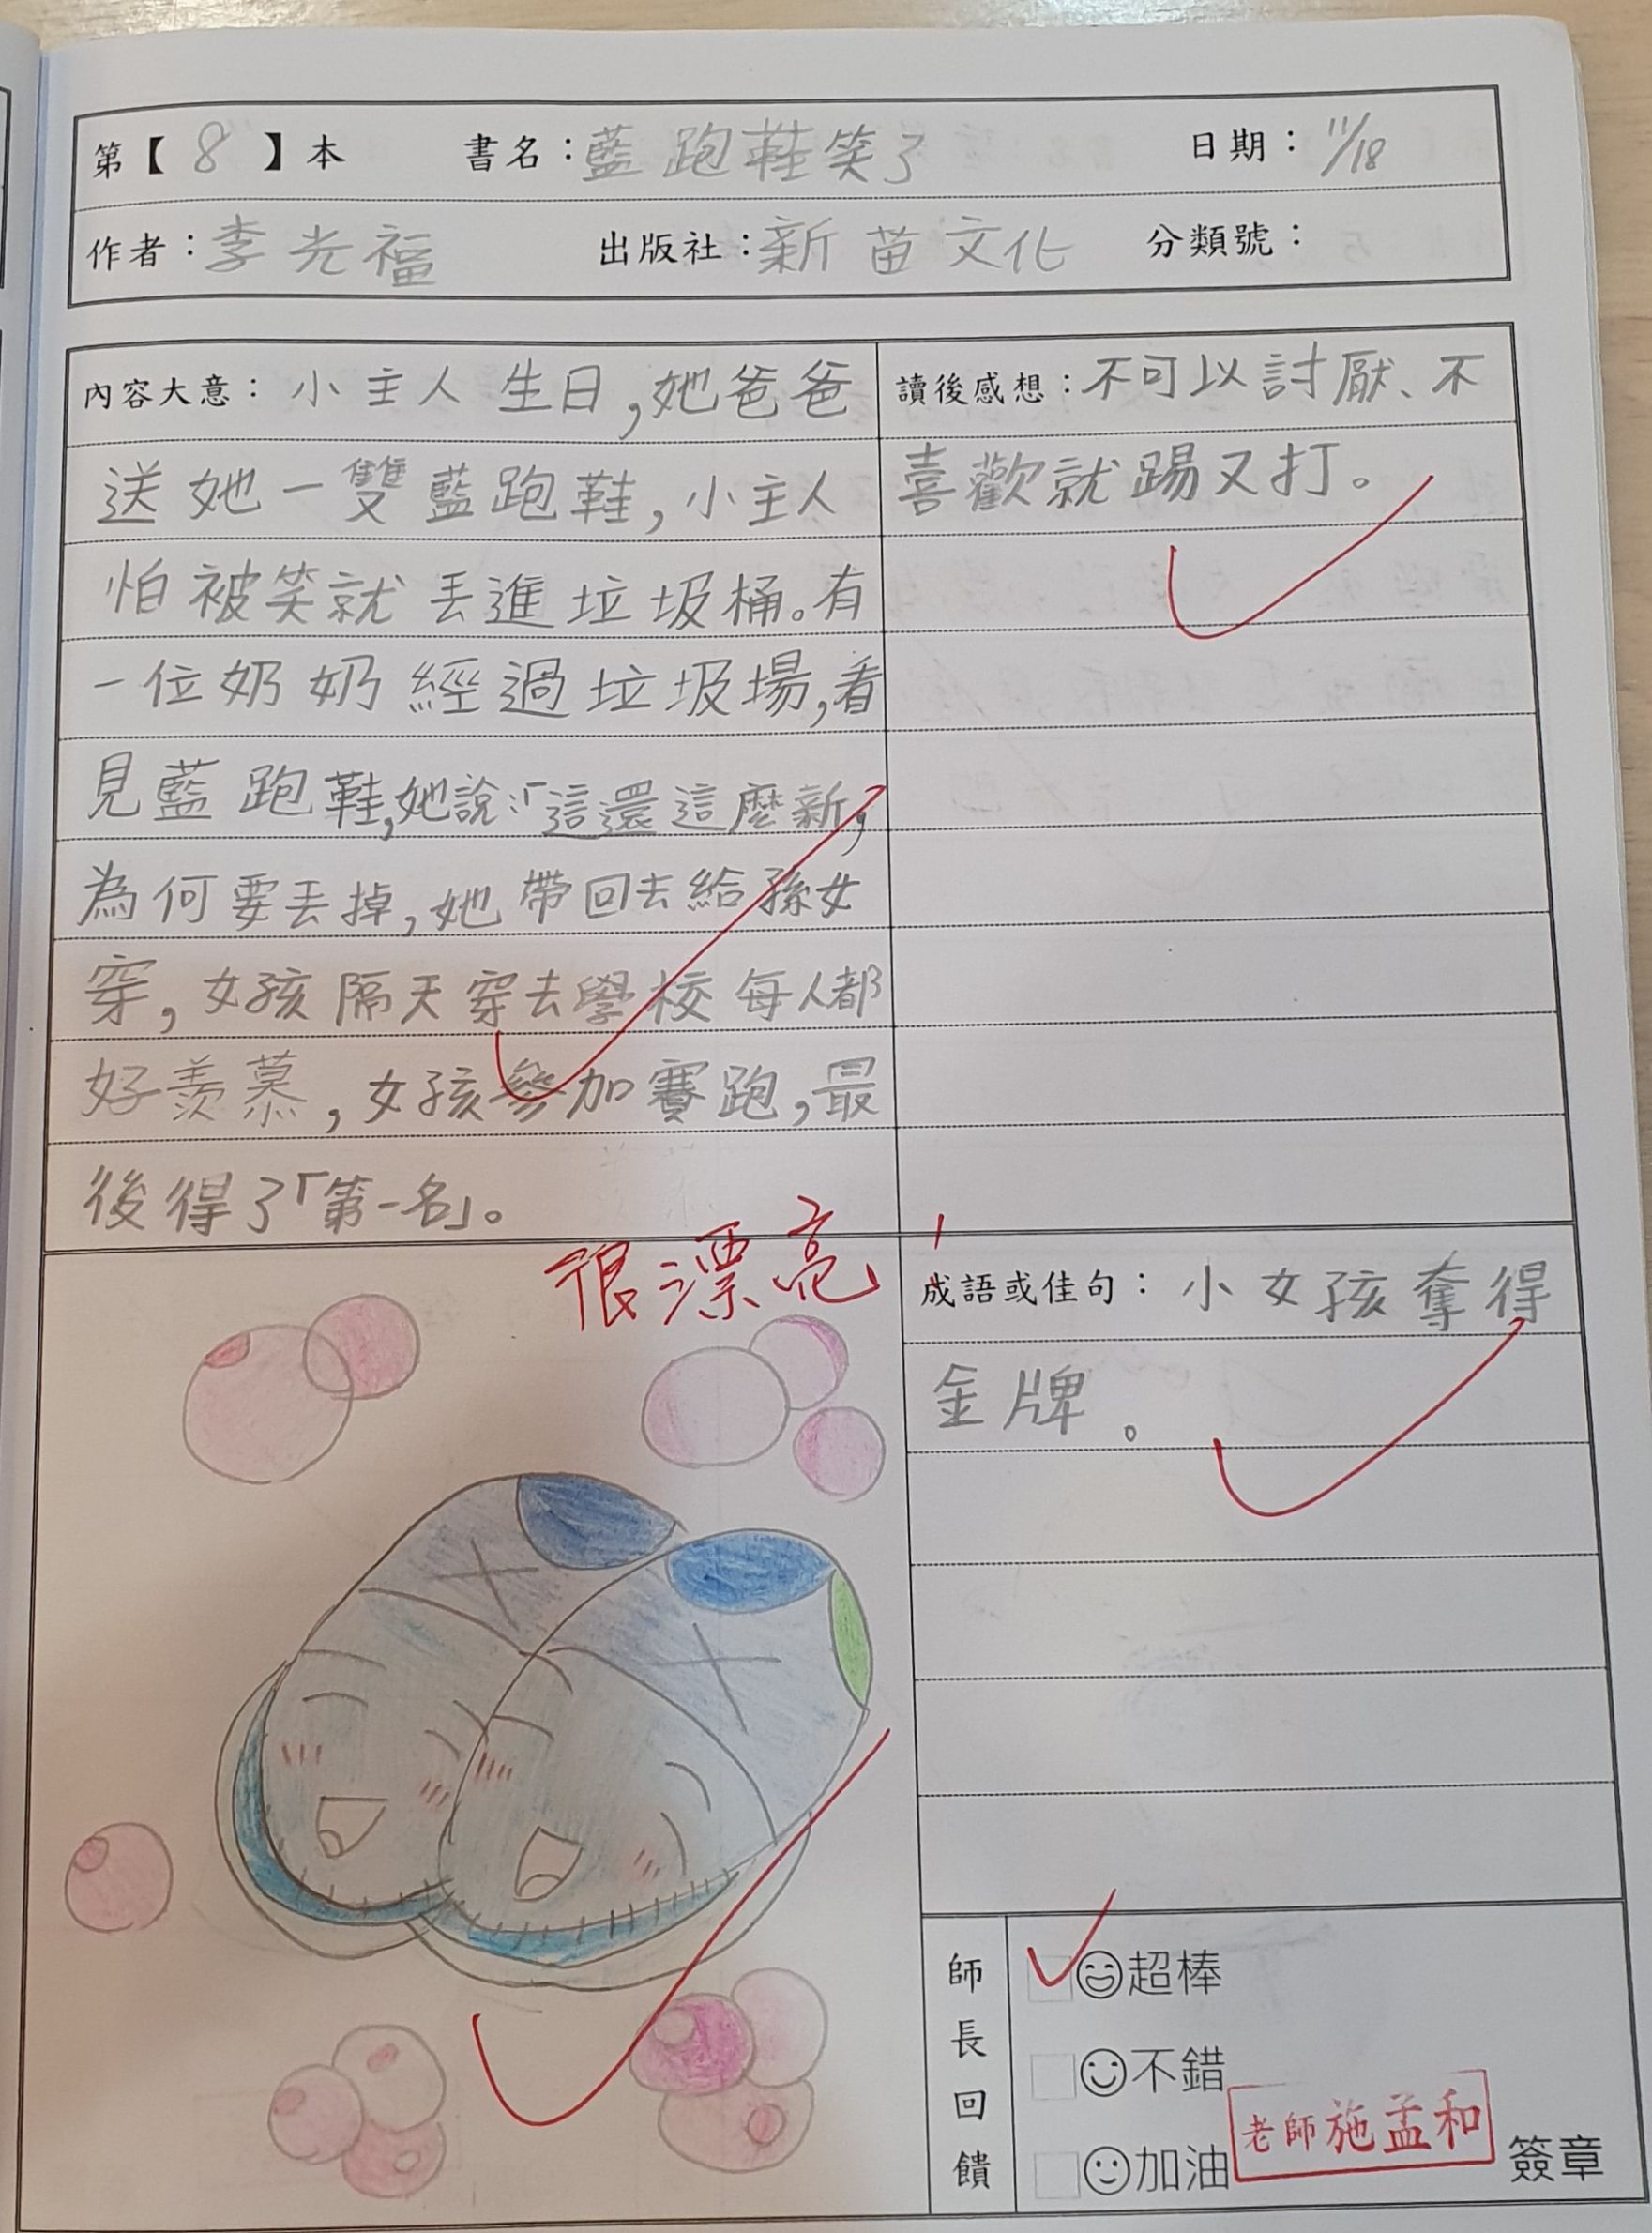 第【 8 】本 書名：藍跑鞋笑了 日期：11/18
作者：李光福 出版社：新苗文化 分類號：
內容大意：小主人生日，她爸爸
送她一雙藍跑鞋，小主人
怕被笑就丟進垃圾桶。有
一位奶奶經過垃圾場，看
見藍跑鞋，她說：「這還這麼新，
為何要丟掉，她帶回去給孫女
穿，女孩隔天穿去學校每人都
好羨慕，女孩參加賽跑，最
後得了「第一名」。
讀後感想：不可以討厭、不
喜歡就踢又打。
很漂亮！
成語或佳句：小女孩奪得
金牌。
師長回饋
超棒
不錯
加油
老師施孟和
簽章